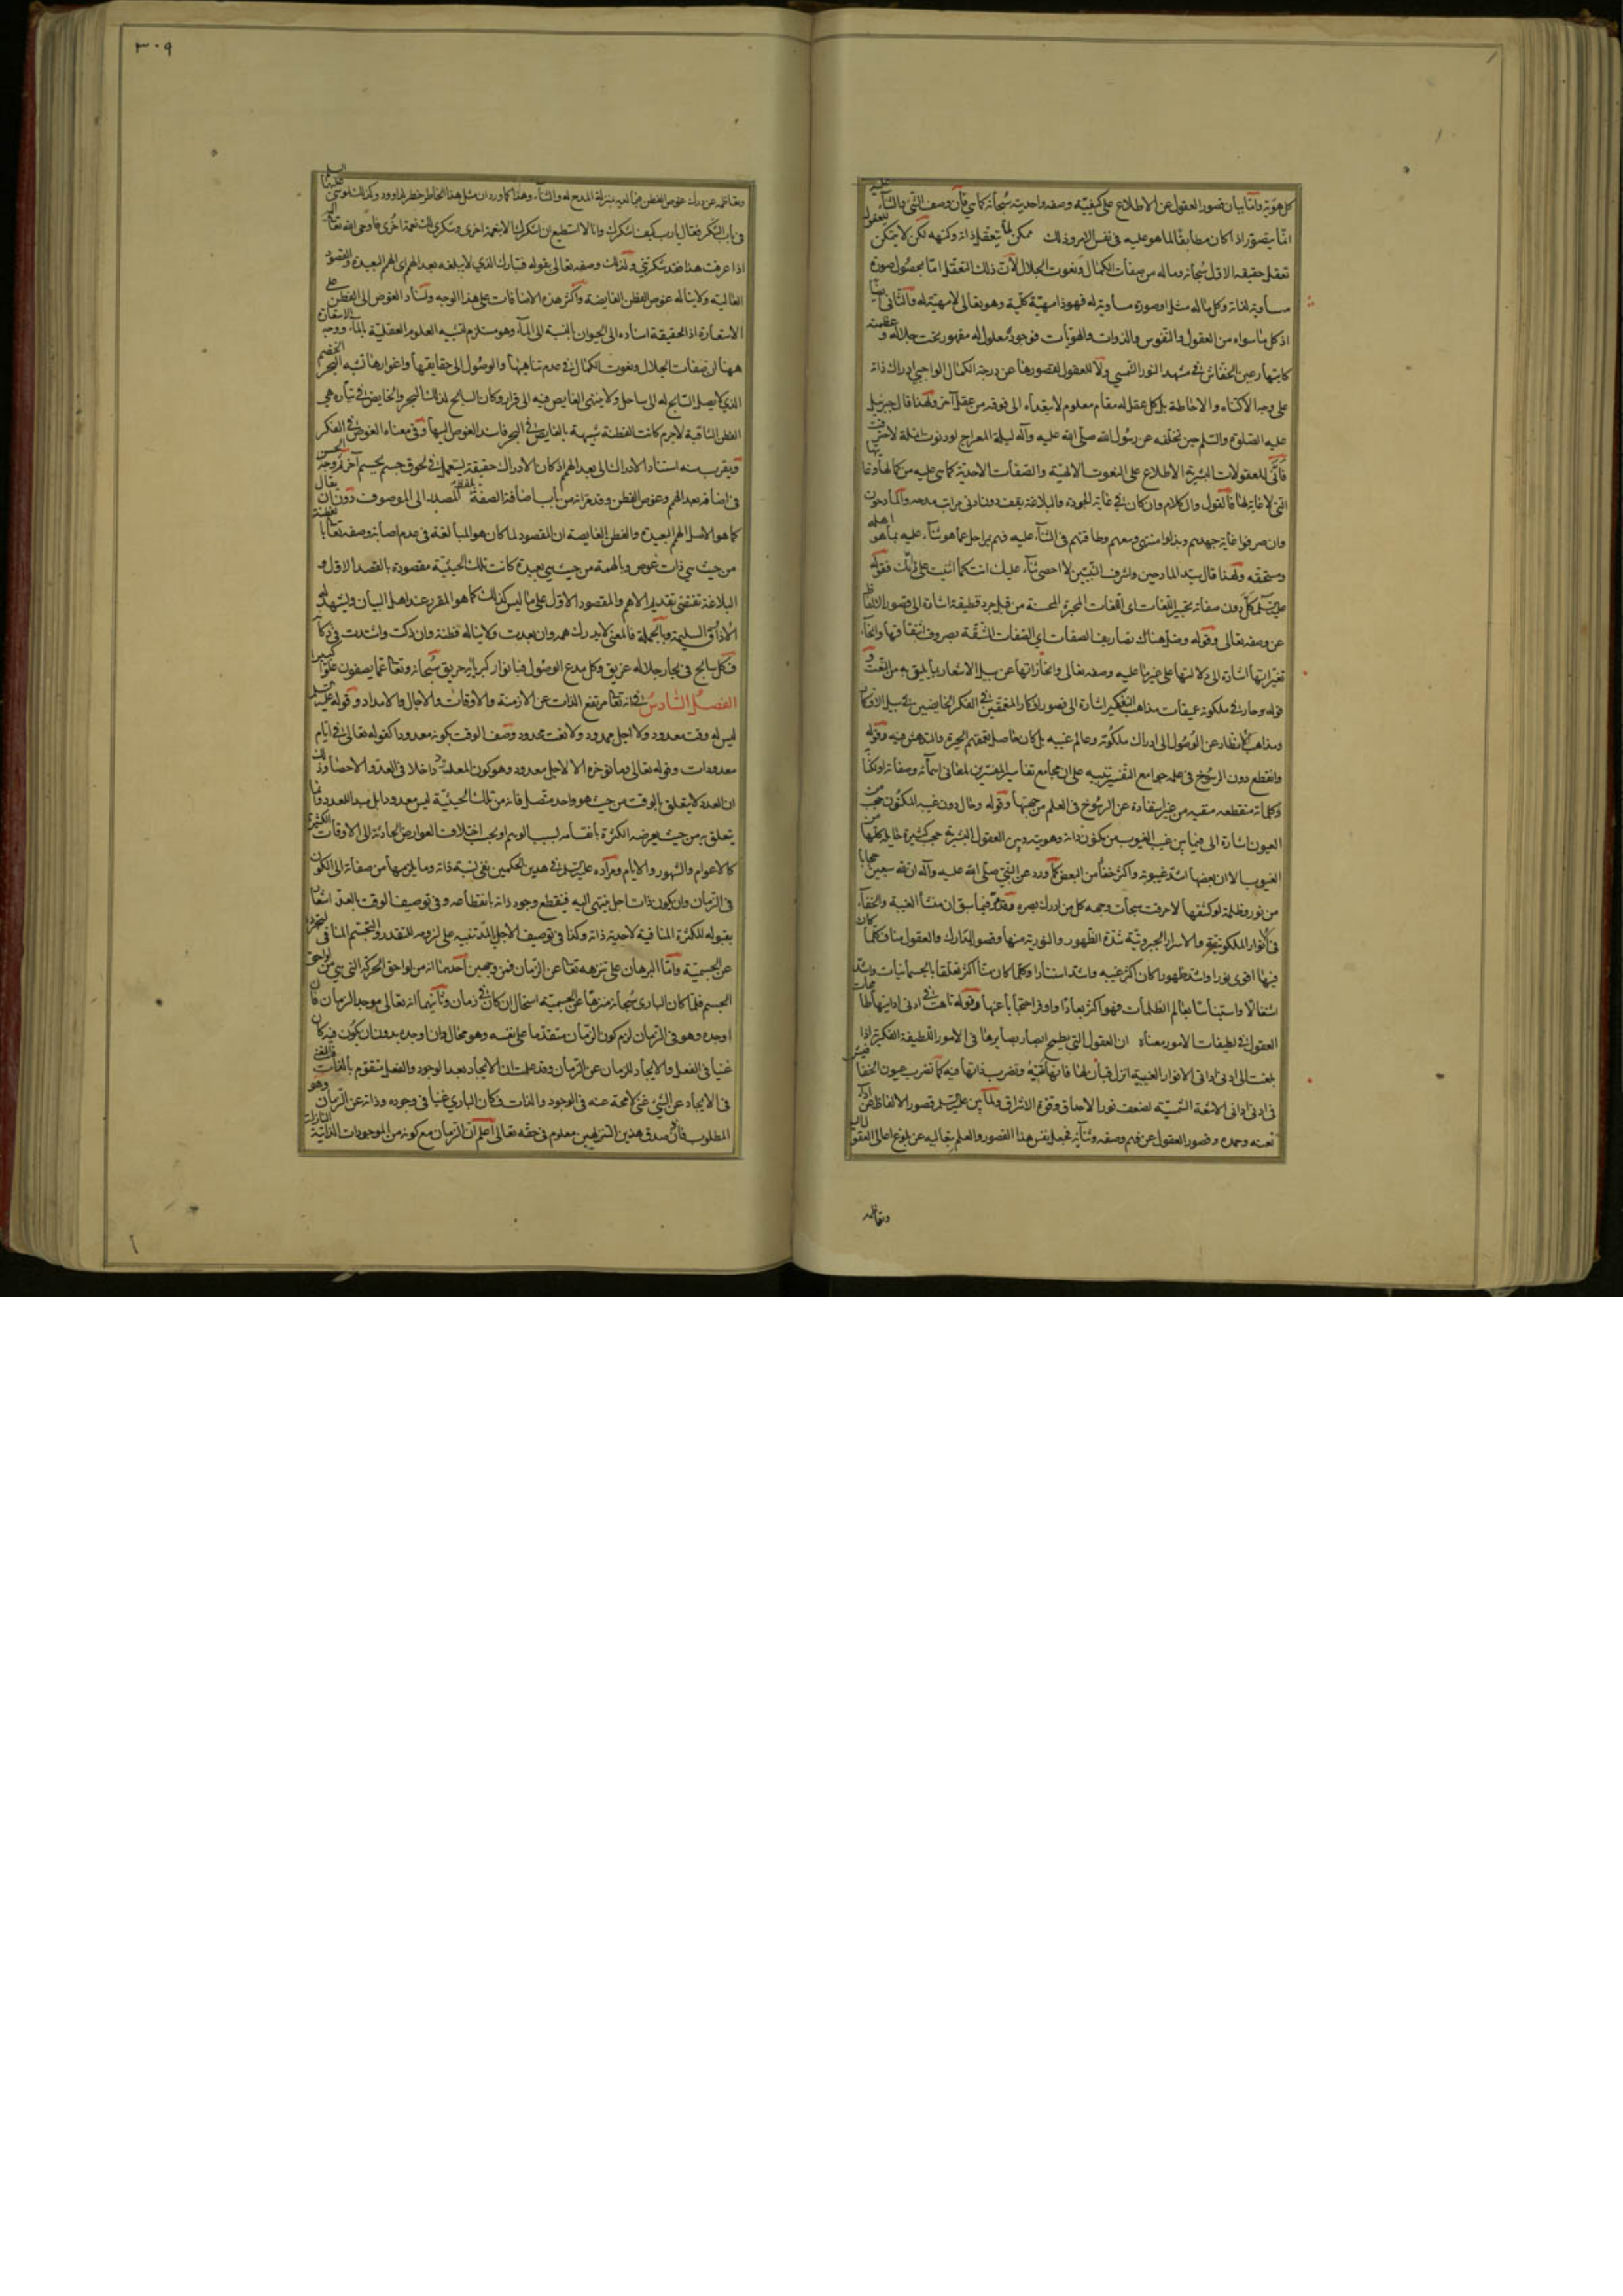 كل هويّة وامّا بيان قصور العقول عن الاطلاع على كيفيّة وصفه واحديته سُبحانه كما هي فلأن وصف الشئ والثناء عليه
انّما يتصوّر اذا كان مطابقًا لما هو عليه فى نفس الامر وذلك ممكن بتعقل ذاته وكنهه لكن لا يمكن للعقول
تعقل حقيقه الاول سُبحانه وماله من صفات الكمال ونعوت الجلال لأن ذلك التعقل امّا بحصُول صورة
مساوية لذاته وكل ماله مثل او صورة مساوية له فهو ذا مهيّة كليّة وهو تعالى لا مهيّة له والثانى ايضًا
اذ كل ما سواه من العقول والنفوس والذوات والهويّات فوجوده معلول له مقهور تحت جلاله وعظمته
كانبهار عين الخفّاش فى مشهد النور الشمسي ولا للعقول لقصورها عن درجة الكمال الواجبي ادراك ذاته
على وجه الاكتناه والاحاطة بل كل عقل له مقام معلوم لا يتعداه الى فوقه من عقل آخر ولهذا قال جبرئيل
عليه الصّلوة والسّلم حين تخلّفه عن رسُول الله صلّى الله عليه وآله ليلة المعراج لو دنوت انملة لاحترقت
فانّى للعقولات البشريّة الاطلاع على النعوت الالهيّة والصّفات الاحديّة كما هي عليه من كمالها وغايتها
التى لا غاية لها فالقول والكلام وان كان فى غاية الجودة والبلاغة يقف دون ادنى مراتب مدحه والمادحون
وان صرفوا غاية جهدهم وبذلوا منتهى وسعهم وطاقتهم فى الثناء عليه فهم بمراحل عما هو ثناء عليه بما هو اهله
ومستحقه ولهذا قال سيّد المادحين واشرف النبيّين لا احصى ثناء عليك انت كما اثنيت على نفسك فقوله
عليه السّلم كلّ دون صفاته تحبير اللّغات اى اللّغات المحبرة المحسنة من قبل جرد قطيفة اشارة الى قصور الالفاظ
عن وصفه تعالى وقوله وضل هناك تصاريف الصفات اي الصّفات المشتقّة بصروف اشتقاقها وانحاء
تغيّراتها اشارة الى دلالتها على غير ما عليه وصفه تعالى وانحرافها عن سبيل الاشعار بما يليق به من النعت
قوله وحار فى ملكوته عميقات مذاهب التفكير اشارة الى قصور افكار المتعمّقين فى الفكر الخايضين فى سبيل الافكار
ومذاهب الانظار عن الوُصُول الى ادراك ملكُوته وعالم غيبه بل كان حاصل تعمقهم الحيرة والدهش فيه وقوله
وانقطع دون الرسُوخ فى علمه جوامع التّفسير تنبيه على ان مجامع تفاسير المفسّرين لمعانى اسمائه وصفاته
وكلماته منقطعه من غير استفادة عن الرسُوخ فى العلم من جهتها وقوله وحال دون غيبه المكنون حجب من
الغيوب اشارة الى ان بين غيب الغيوب من مكنون ذاته وهويته وبين العقول البشريّة حجب كثيرة حايله كلها من
الغيوب الا ان بعضها اشد غيبوبة واكثر خفأ من البعض كما ورد عن النّبي صلّى الله عليه وآله ان لله سبعين حجابا
من نور وظلمة لو كشفها لاحرقت سبحات وجهه كل من ادرك بصره وقد مرّ فيما سبق ان منشأ الغيبة والخفآء
فى الانوار الملكوتيّة والاسرار الجبروتيّة شدّة الظهور والنوريّة منها وقصور المدارك والعقول منا فكلما كان
فيها اقوى نورا واشد ظهورا كان اكثر غيبه واشد استتارا وكلما كان منّا اكثر تعلقا بالجسمانيات واشد
اشتغالا واستيناسا بعالم الظلمات فهو اكثر بعادًا واوفر احتجابا عنها وقوله تاهت فى ادنى ادانيها طامحات
العقول فى لطيفات الامور معناه ان العقول التى يطمح ابصار بصايرها فى الامور اللطيفة الفكرية اذا
بلغت الى ادنى ادانى الانوار الغيبية
فى ادنى ادانى الاشعة الشمسيّة لضعف نور الاحداق وقوة الاشراق ولما بين عليه السلم قصور الالفاظ عن
نعته وحمده وقصور العقول عن فهم وصفه وثنائه فجعل نفس هذا القصور والعلم بتعاليه عن بلوغ اعالى العقول
وتقاعد
٣٠٩
وتقاعده عن درك غوص الفطن بمنزلة المدح له والثناء وهذا كما ورد ان مثل هذا الخاطر خطر لداوود وكذا لموسى عليهما السلم
فى باب الشكر فقال يا رب كيف اشكرك وانا لا استطيع ان اشكرك الا بنعمة اخرى وشكرى لك نعمة اخُرى فاوحى الله تعالى
اذا عرفت هذا فقد شكرتني ولذلك وصفه تعالى بقوله فتبارك الذي لا يبلغه بعد الهمم اى الهمم البعيدة والقصود
العاليه ولا يناله غوص الفطن اى الفطن الغايصة واكثر هذه الاضافات على هذا الوجه واسناد الغوص الى الفطن على
الاستعارة اذ الحقيقة اسناده الى الحيوان بالنسبة الى الماء وهو مستلزم لتشبيه العلوم العقليّة بالماء ووجه الاستعارة
ههنا ان صفات الجلال ونعوت الكمال فى عدم تناهيها والوصُول الى حقايقها واغوارها تشبه البحر الخضم
الذي لا يصل السّابح له الى ساحل ولا ينتهى الغايص فيه الى قرار وكان السابح لذلك البحر والخايض فى تيّاره هي
الفطن الثاقبة لاجرم كانت الفطنة شبيهة بالغايص فى البحر فاسند الغوص اليها وفى معناه الغوص فى الفكر
ويقرب منه اسناد الادراك الى بعد الهمم اذ كان الادراك حقيقة يستعمل فى لحوق جسم بجسم آخر ووجه الحسن
فى اضافة بعد الهمم وغوص الفطن وقد مرّ انه من باب اضافة الصفة بلفظ المصدر الى الموصوف دون ان يقال
كما هو الاصل الهمم البعيدة والفطن الغايصة ان المقصود لما كان هو المبالغة فى عدم اصابة وصفه تعالى بالفطنة
من حيث هي ذات غوص وبالهمة من حيث هي بعيدة كانت تلك الحيثيّة مقصودة بالقصد الاول و
البلاغة تقتضى تقديم الاهم والمقصود الاول على ما ليس كذلك كما هو المقرر عند اهل البيان ويشهد له
الاذواق السليمة وبالجملة فالمعنى لا يدركه همه وان بعدت ولا يناله فطنة وان ذكت واشتدت فى ذكاء
فكل سابح فى بحار جلاله غريق وكل مدع الوصُول فبانوار كبريائه حريق سُبحانه وتعالى عما يصفون علوا كبيرا
الفصلُ السّادسُ فى انه تعالى مرتفع الذات عن الازمنة والاوقات والاجال والامداد وقوله عليه السلم
ليس له وقت معدود ولا اجل ممدود ولا نعت محدود وصف الوقت بكونه معدودا كقوله تعالى فى ايّام
معدودات وقوله تعالى وما نؤخره الا لاجل معدود وهو كون المعدود داخلا فى العد والاحصأ وذلك
ان العدد لا يتعلق بالوقت من حيث هو واحد متصل فانه من تلك الحيثيّة ليس معدودا بل مبدأ للعدد وانما
يتعلق به من حيث يعرضه الكثرة بانقسامه بسبب الوهم او بحسب اختلاف العوارض الحادثة الى الاوقات الكثيرة
كالاعوام والشهور والايام ومراده عليه السلم فى هذين الحكمين نفى نسبة ذاته وما يلزمها من صفاته الى الكون
فى الزمان وان يكون ذات اجل ينتهى اليه فينقطع وجود ذاته بانقطاعه وفى توصيف الوقت بالعدّ اشعار
بقبوله للكثرة المنافية لاحدية ذاته وكذا فى توصيف الاجل بالمدّ تنبيه على لزومه للتقدر والتجسّم المنافى لتجرّده
عن الجسميّة وامّا البرهان على تنزهه تعالى عن الزّمان فمن وجهين احدهما انه من لواحق الحركة التى هي من لواحق
الجسم فلما كان البارى سُبحانه منزهًا عن الجسميّة استحال ان كان فى زمان وثانيهما انه تعالى موجد الزمان فان
اوجده وهو فى الزمان لزم كون الزّمان متقدّما على نفسه وهو محال وان اوجده بدون ان يكُون فيه كان
غنيا فى الفعل والايجاد للزمان عن الزّمان وقد علمت ان الايجاد بعد الوجود والفعل متقوّم بالذات فالغنى
فى الايجاد عن الشئ غنى لا محة عنه فى الوجود والذات فكان الباري غنيأ فى وجوده وذاته عن الزمان وهو
المطلوب فاذن صدق هذين التنزيهين معلوم فى حقه تعالى اعلم ان الزّمان مع كونه من الموجودات